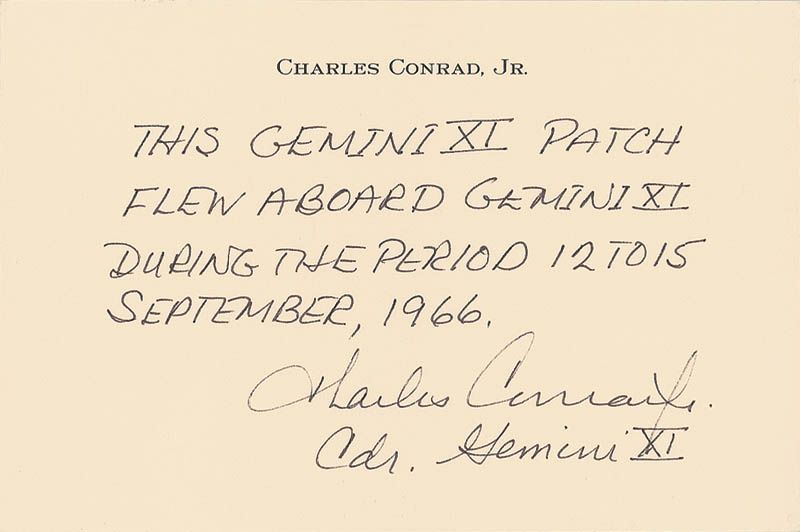 CHARLES CONRAD, JR.
THIS GEMINI XI PATCH
FLEW ABOARD GEMINI XI
DURING THE PERIOD 12 TO 15
SEPTEMBER, 1966.
Charles Conrad Jr.
Cdr. Gemini XI